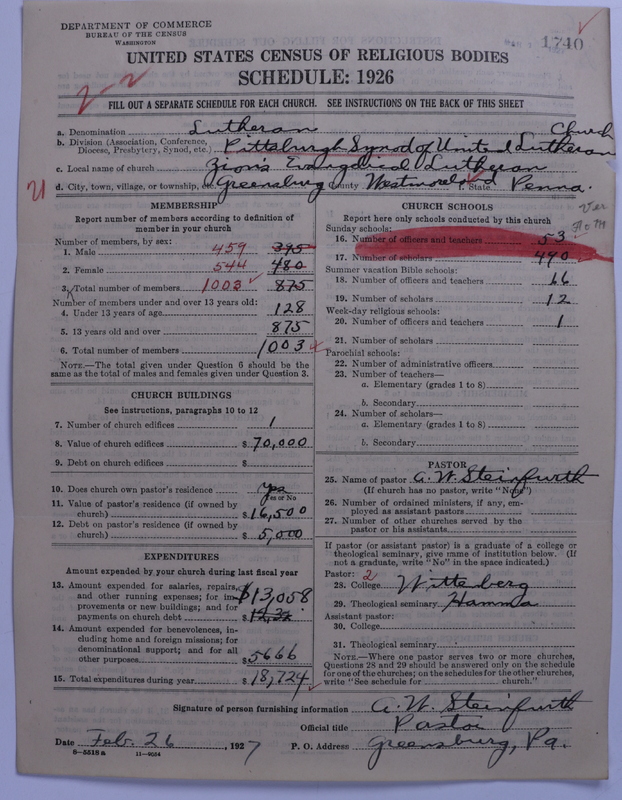 DEPARTMENT OF COMMERCE
BUREAU OF THE CENSUS
WASHINGTON
1740
UNITED STATES CENSUS OF RELIGIOUS BODIES
SCHEDULE: 1926
2-2
FILL OUT A SEPARATE SCHEDULE FOR EACH CHURCH. SEE INSTRUCTIONS ON THE BACK OF THIS SHEET
a. Denomination Lutheran Church
b. Division (Association, Conference, Diocese, Presbytery, Synod, etc.) Pittsburgh Synod of United Lutheran
c. Local name of church Zion's Evangelical Lutheran
d. City, town, village, or township, Greensburg County Westmoreland State Penna.
MEMBERSHIP
Report number of members according to definition of
member in your church
Number of members, by sex:
1. Male 459 395
2. Female 544 480
3. Total number of members 1003 875
Number of members under and over 13 years old:
4. Under 13 years of age 128
5. 13 years old and over 875
6. Total number of members 1003
NOTE.—The total given under Question 6 should be
same as the total of males and females given under Question 3.
CHURCH BUILDINGS
See instructions, paragraphs 10 to 12
7. Number of church edifices 1
8. Value of church edifices $70,000
9. Debt on church edifices $
10. Does church own pastor's residence yes
Yes or No
11. Value of pastor's residence (if owned by
church) $16,500
12. Debt on pastor's residence (if owned by
church) $5,000
EXPENDITURES
Amount expended by your church during last fiscal year
13. Amount expended for salaries, repairs,
and other running expenses; for im-
provements or new buildings; and for
payments on church debt $13,058
14. Amount expended for benevolences, in-
cluding home and foreign missions; for
denominational support; and for all
other purposes $5666
15. Total expenditures during year $18,724
CHURCH SCHOOLS
Report here only schools conducted by this church
Sunday schools:
16. Number of officers and teachers 53
17. Number of scholars 490
Summer vacation Bible schools:
18. Number of officers and teachers 66
19. Number of scholars 12
Week-day religious schools:
20. Number of officers and teachers 1
21. Number of scholars
Parochial schools:
22. Number of administrative officers
23. Number of teachers—
a. Elementary (grades 1 to 8)
b. Secondary
24. Number of scholars—
a. Elementary (grades 1 to 8)
b. Secondary
PASTOR
25. Name of pastor A. W. Steinfurth
(If church has no pastor, write "None")
26. Number of ordained ministers, if any, em-
ployed as assistant pastors
27. Number of other churches served by the
pastor or his assistants
If pastor (or assistant pastor) is a graduate of a college or
theological seminary, give name of institution below. (If
not a graduate, write "No" in the space indicated.)
Pastor: 2
28. College Wittenberg
29. Theological seminary Hamma
Assistant pastor:
30. College
31. Theological seminary
NOTE.—Where one pastor serves two or more churches,
Questions 28 and 29 should be answered only on the schedule
for one of the churches; on the schedules for the other churches,
write "See schedule for church."
Signature of person furnishing information A. W. Steinfurth
Official title Pastor
Date Feb. 26, 1927 P. O. Address Greensburg, Pa.
8—5518 a 11—9054